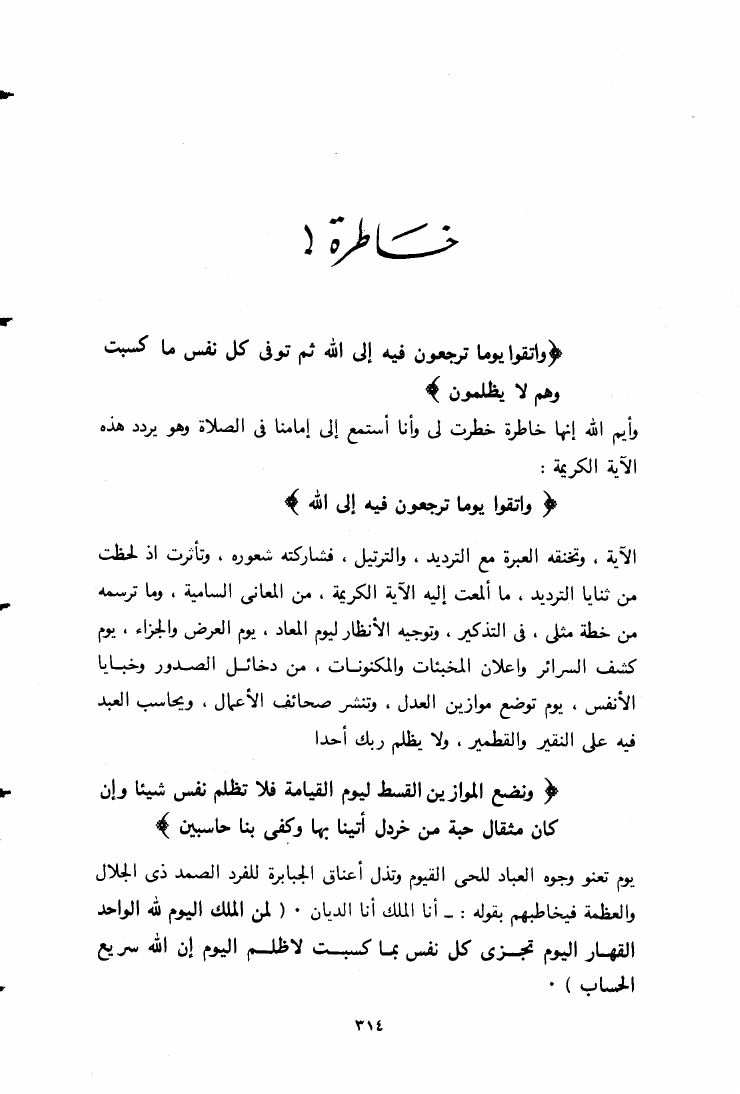 خاطرة !
﴿واتقوا يوما ترجعون فيه إلى الله ثم توفى كل نفس ما كسبت
وهم لا يظلمون ﴾
وأيم الله إنها خاطرة خطرت لى وأنا أستمع إلى إمامنا فى الصلاة وهو يردد هذه
الآية الكريمة :
﴿ واتقوا يوما ترجعون فيه إلى الله ﴾
الآية ، وتخنقه العبرة مع الترديد ، والترتيل ، فشاركته شعوره ، وتأثرت اذ لحظت
من ثنايا الترديد ، ما ألمعت إليه الآية الكريمة ، من المعانى السامية ، وما ترسمه
من خطة مثلى ، فى التذكير ، وتوجيه الأنظار ليوم المعاد ، يوم العرض والجزاء ، يوم
كشف السرائر واعلان المخبئات والمكنونات ، من دخائل الصدور وخبايا
الأنفس ، يوم توضع موازين العدل ، وتنشر صحائف الأعمال ، ويحاسب العبد
فيه على النقير والقطمير ، ولا يظلم ربك أحدا
﴿ ونضع الموازين القسط ليوم القيامة فلا تظلم نفس شيئا وإن
كان مثقال حبة من خردل أتينا بها وكفى بنا حاسبين ﴾
يوم تعنو وجوه العباد للحى القيوم وتذل أعناق الجبابرة للفرد الصمد ذى الجلال
والعظمة فيخاطبهم بقوله : ـ أنا الملك أنا الديان ٠ ( لمن الملك اليوم لله الواحد
القهار اليوم تجزى كل نفس بما كسبت لاظلم اليوم إن الله سريع
الحساب ) ٠
٣١٤